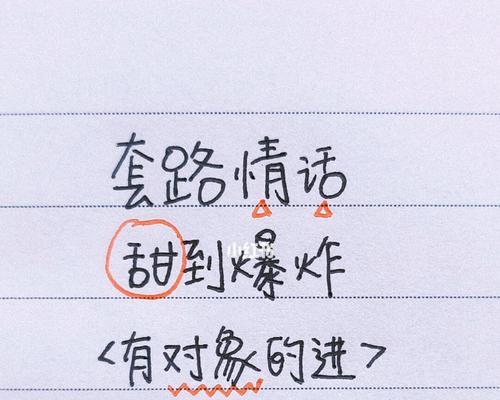 套路情话
甜到爆炸
小红书
<有对象的进>